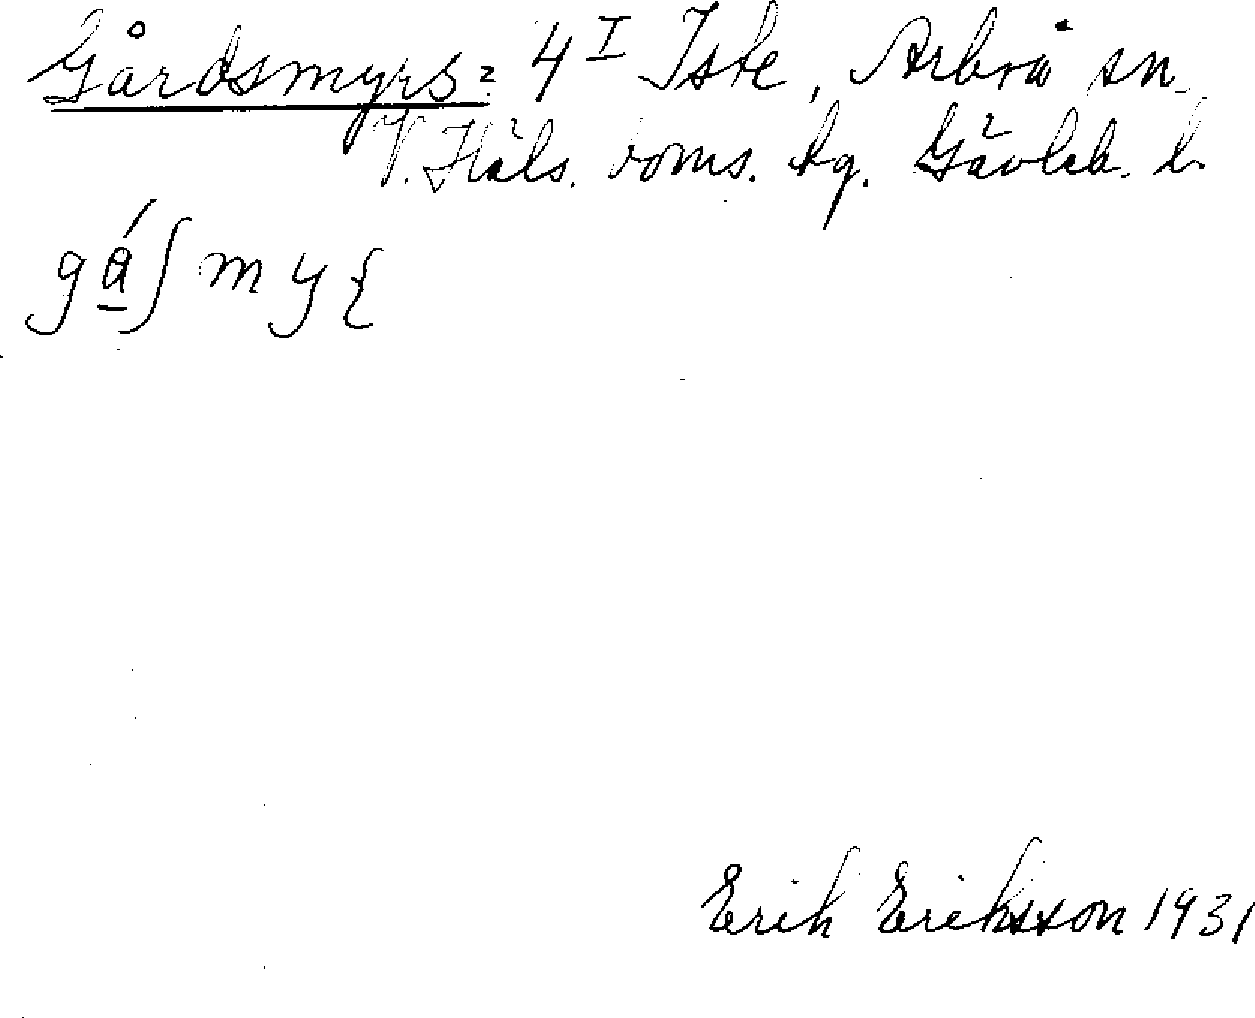 Gårdsmyrs: 4 I Iste, Arbrå sn.
V. Häls. doms. tg. Gävleb. l.
gá̱ʃ my{
Erik Eriksson 1931